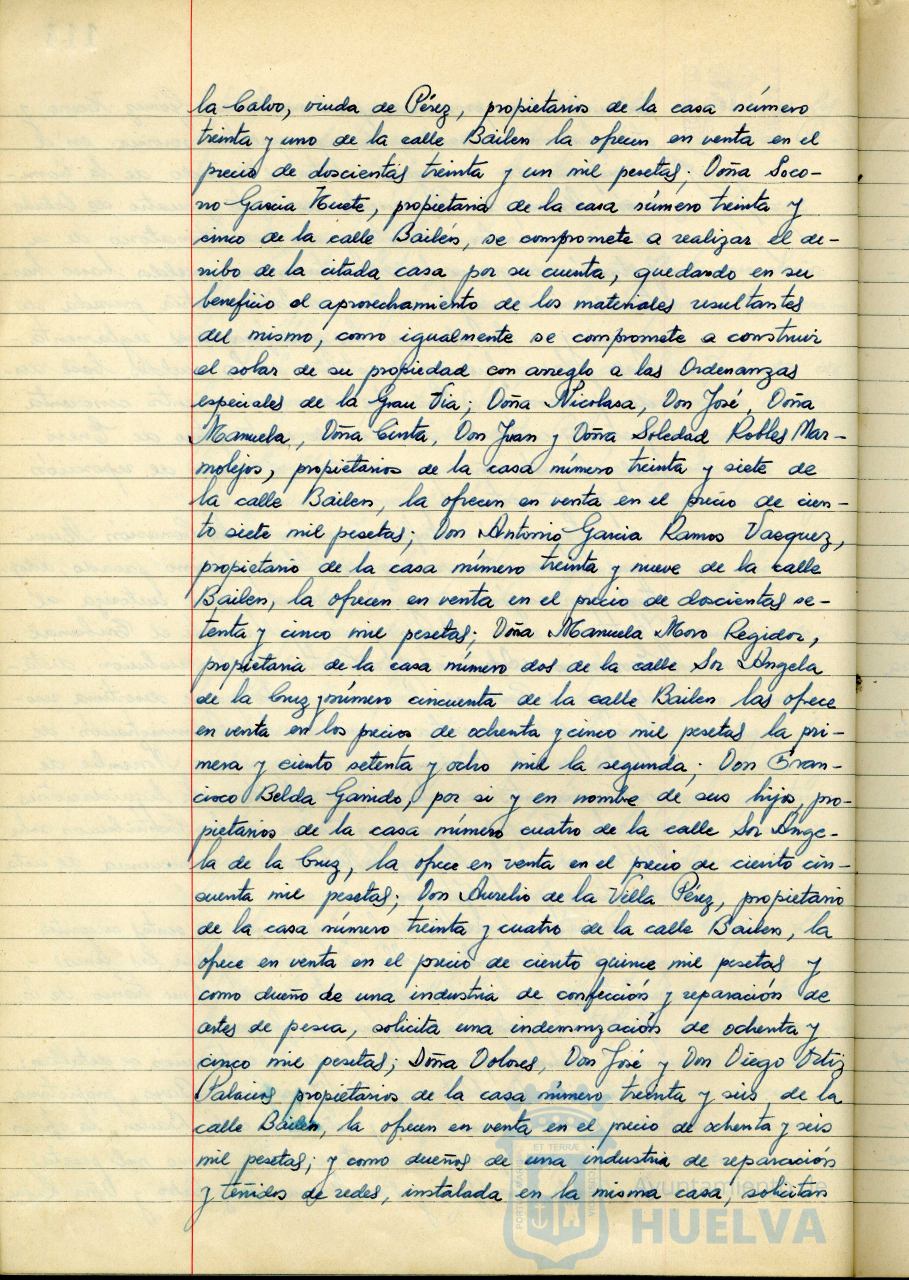 la Calvo, viuda de Pérez, propietarios de la casa número
treinta y uno de la calle Bailen la ofrecen en venta en el
precio de doscientas treinta y un mil pesetas; Doña Soco-
rro Garcia Huete, propietaria de la casa número treinta y
cinco de la calle Bailén, se compromete a realizar el de-
rribo de la citada casa por su cuenta, quedando en su
beneficio el aprovechamiento de los materiales resultantes
del mismo, como igualmente se compromete a construir
el solar de su propiedad con arreglo a las Ordenanzas
especiales de la Gran Via; Doña Nicolasa, Don José, Doña
Manuela, Doña Cinta, Don Juan y Doña Soledad Robles Mar-
molejos, propietarios de la casa número treinta y siete de
la calle Bailen, la ofrecen en venta en el precio de cien-
to siete mil pesetas; Don Antonio Garcia Ramos Vazquez,
propietario de la casa número treinta y nueve de la calle
Bailen, la ofrecen en venta en el precio de doscientas se-
tenta y cinco mil pesetas; Doña Manuela Moro Regidor,
propietaria de la casa número dos de la calle Sor Angela
de la Cruz y número cincuenta de la calle Bailen las ofrece
en venta en los precios de ochenta y cinco mil pesetas la pri-
mera y ciento setenta y ocho mil la segunda; Don Fran-
cisco Belda Garrido, por si y en nombre de sus hijos, pro-
pietarios de la casa número cuatro de la calle Sor Ange-
la de la Cruz, la ofrece en venta en el precio de ciento cin-
cuenta mil pesetas; Don Aurelio de la Villa Pérez, propietario
de la casa número treinta y cuatro de la calle Bailen, la
ofrece en venta en el precio de ciento quince mil pesetas y
como dueño de una industria de confección y reparación de
artes de pesca, solicita una indemnización de ochenta y
cinco mil pesetas; Doña Dolores, Don José y Don Diego Ortiz
Palacios propietarios de la casa número treinta y seis, de la
calle Bailen, la ofrecen en venta en el precio de ochenta y seis
mil pesetas; y como dueños de una industria de reparación
y teñidos de redes, instalada en la misma casa, solicitan
Ayuntamiento de
HUELVA